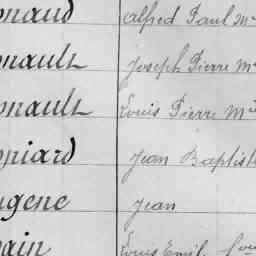 onaud Alfred Paul Mie
onault Joseph Pierre M
onault Louis Pierre M
opiard Jean Baptist
ugene Jean
ain Louis Emil